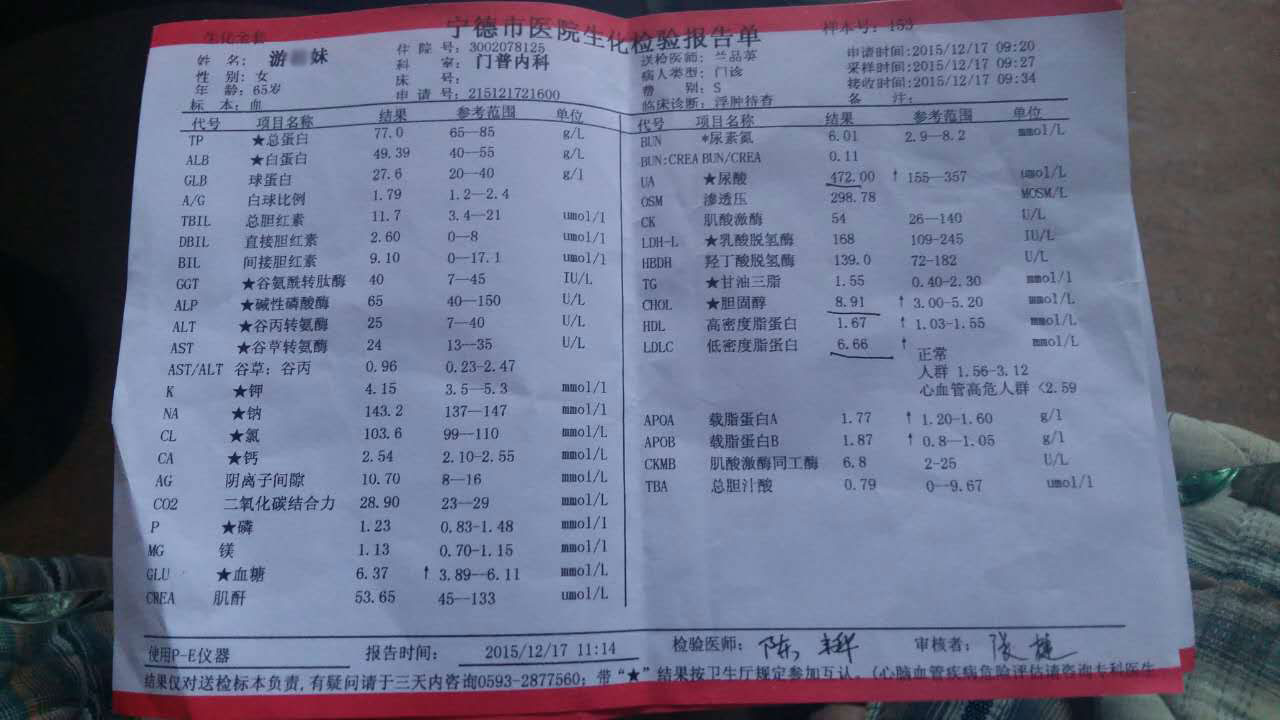 生化全套
宁德市医院生化检验报告单
样本号: 153
姓 名: 游 妹
住 院 号: 3002078125
送检医师: 兰品英
申请时间:2015/12/17 09:20
性 别: 女
科 室: 门普内科
病人类型: 门诊
采样时间:2015/12/17 09:27
年 龄: 65岁
床 号:
费 别: S
接收时间:2015/12/17 09:34
标 本: 血
申 请 号: 215121721600
临床诊断: 浮肿待查
备 注:
代号 项目名称 结果 参考范围 单位
TP ★总蛋白 77.0 65—85 g/L
ALB ★白蛋白 49.39 40—55 g/L
GLB 球蛋白 27.6 20—40 g/l
A/G 白球比例 1.79 1.2—2.4
TBIL 总胆红素 11.7 3.4—21 umol/l
DBIL 直接胆红素 2.60 0—8 umol/l
BIL 间接胆红素 9.10 0—17.1 umol/l
GGT ★谷氨酰转肽酶 40 7—45 IU/L
ALP ★碱性磷酸酶 65 40—150 U/L
ALT ★谷丙转氨酶 25 7—40 U/L
AST ★谷草转氨酶 24 13—35 U/L
AST/ALT 谷草: 谷丙 0.96 0.23-2.47
K ★钾 4.15 3.5—5.3 mmol/l
NA ★钠 143.2 137—147 mmol/L
CL ★氯 103.6 99—110 mmol/L
CA ★钙 2.54 2.10-2.55 mmol/L
AG 阴离子间隙 10.70 8—16 mmol/L
CO2 二氧化碳结合力 28.90 23—29 mmol/L
P ★磷 1.23 0.83-1.48 mmol/l
MG 镁 1.13 0.70-1.15 mmol/l
GLU ★血糖 6.37 ↑ 3.89—6.11 mmol/L
CREA 肌酐 53.65 45—133 umol/L
代号 项目名称 结果 参考范围 单位
BUN *尿素氮 6.01 2.9—8.2 mmol/L
BUN:CREA BUN/CREA 0.11
UA ★尿酸 472.00 ↑ 155—357 umol/L
OSM 渗透压 298.78 MOSM/L
CK 肌酸激酶 54 26—140 U/L
LDH-L ★乳酸脱氢酶 168 109-245 IU/L
HBDH 羟丁酸脱氢酶 139.0 72-182 U/L
TG ★甘油三脂 1.55 0.40-2.30 mmol/l
CHOL ★胆固醇 8.91 ↑ 3.00-5.20 mmol/L
HDL 高密度脂蛋白 1.67 ↑ 1.03-1.55 mmol/L
LDLC 低密度脂蛋白 6.66 ↑ mmol/L
正常
人群 1.56-3.12
心血管高危人群 <2.59
APOA 载脂蛋白A 1.77 ↑ 1.20-1.60 g/l
APOB 载脂蛋白B 1.87 ↑ 0.8—1.05 g/l
CKMB 肌酸激酶同工酶 6.8 2-25 U/L
TBA 总胆汁酸 0.79 0—9.67 umol/l
使用P-E仪器 报告时间: 2015/12/17 11:14 检验医师: 审核者:
结果仅对送检标本负责,有疑问请于三天内咨询0593-2877560; 带“★”结果按卫生厅规定参加互认。(心脑血管疾病危险评估请咨询专科医生